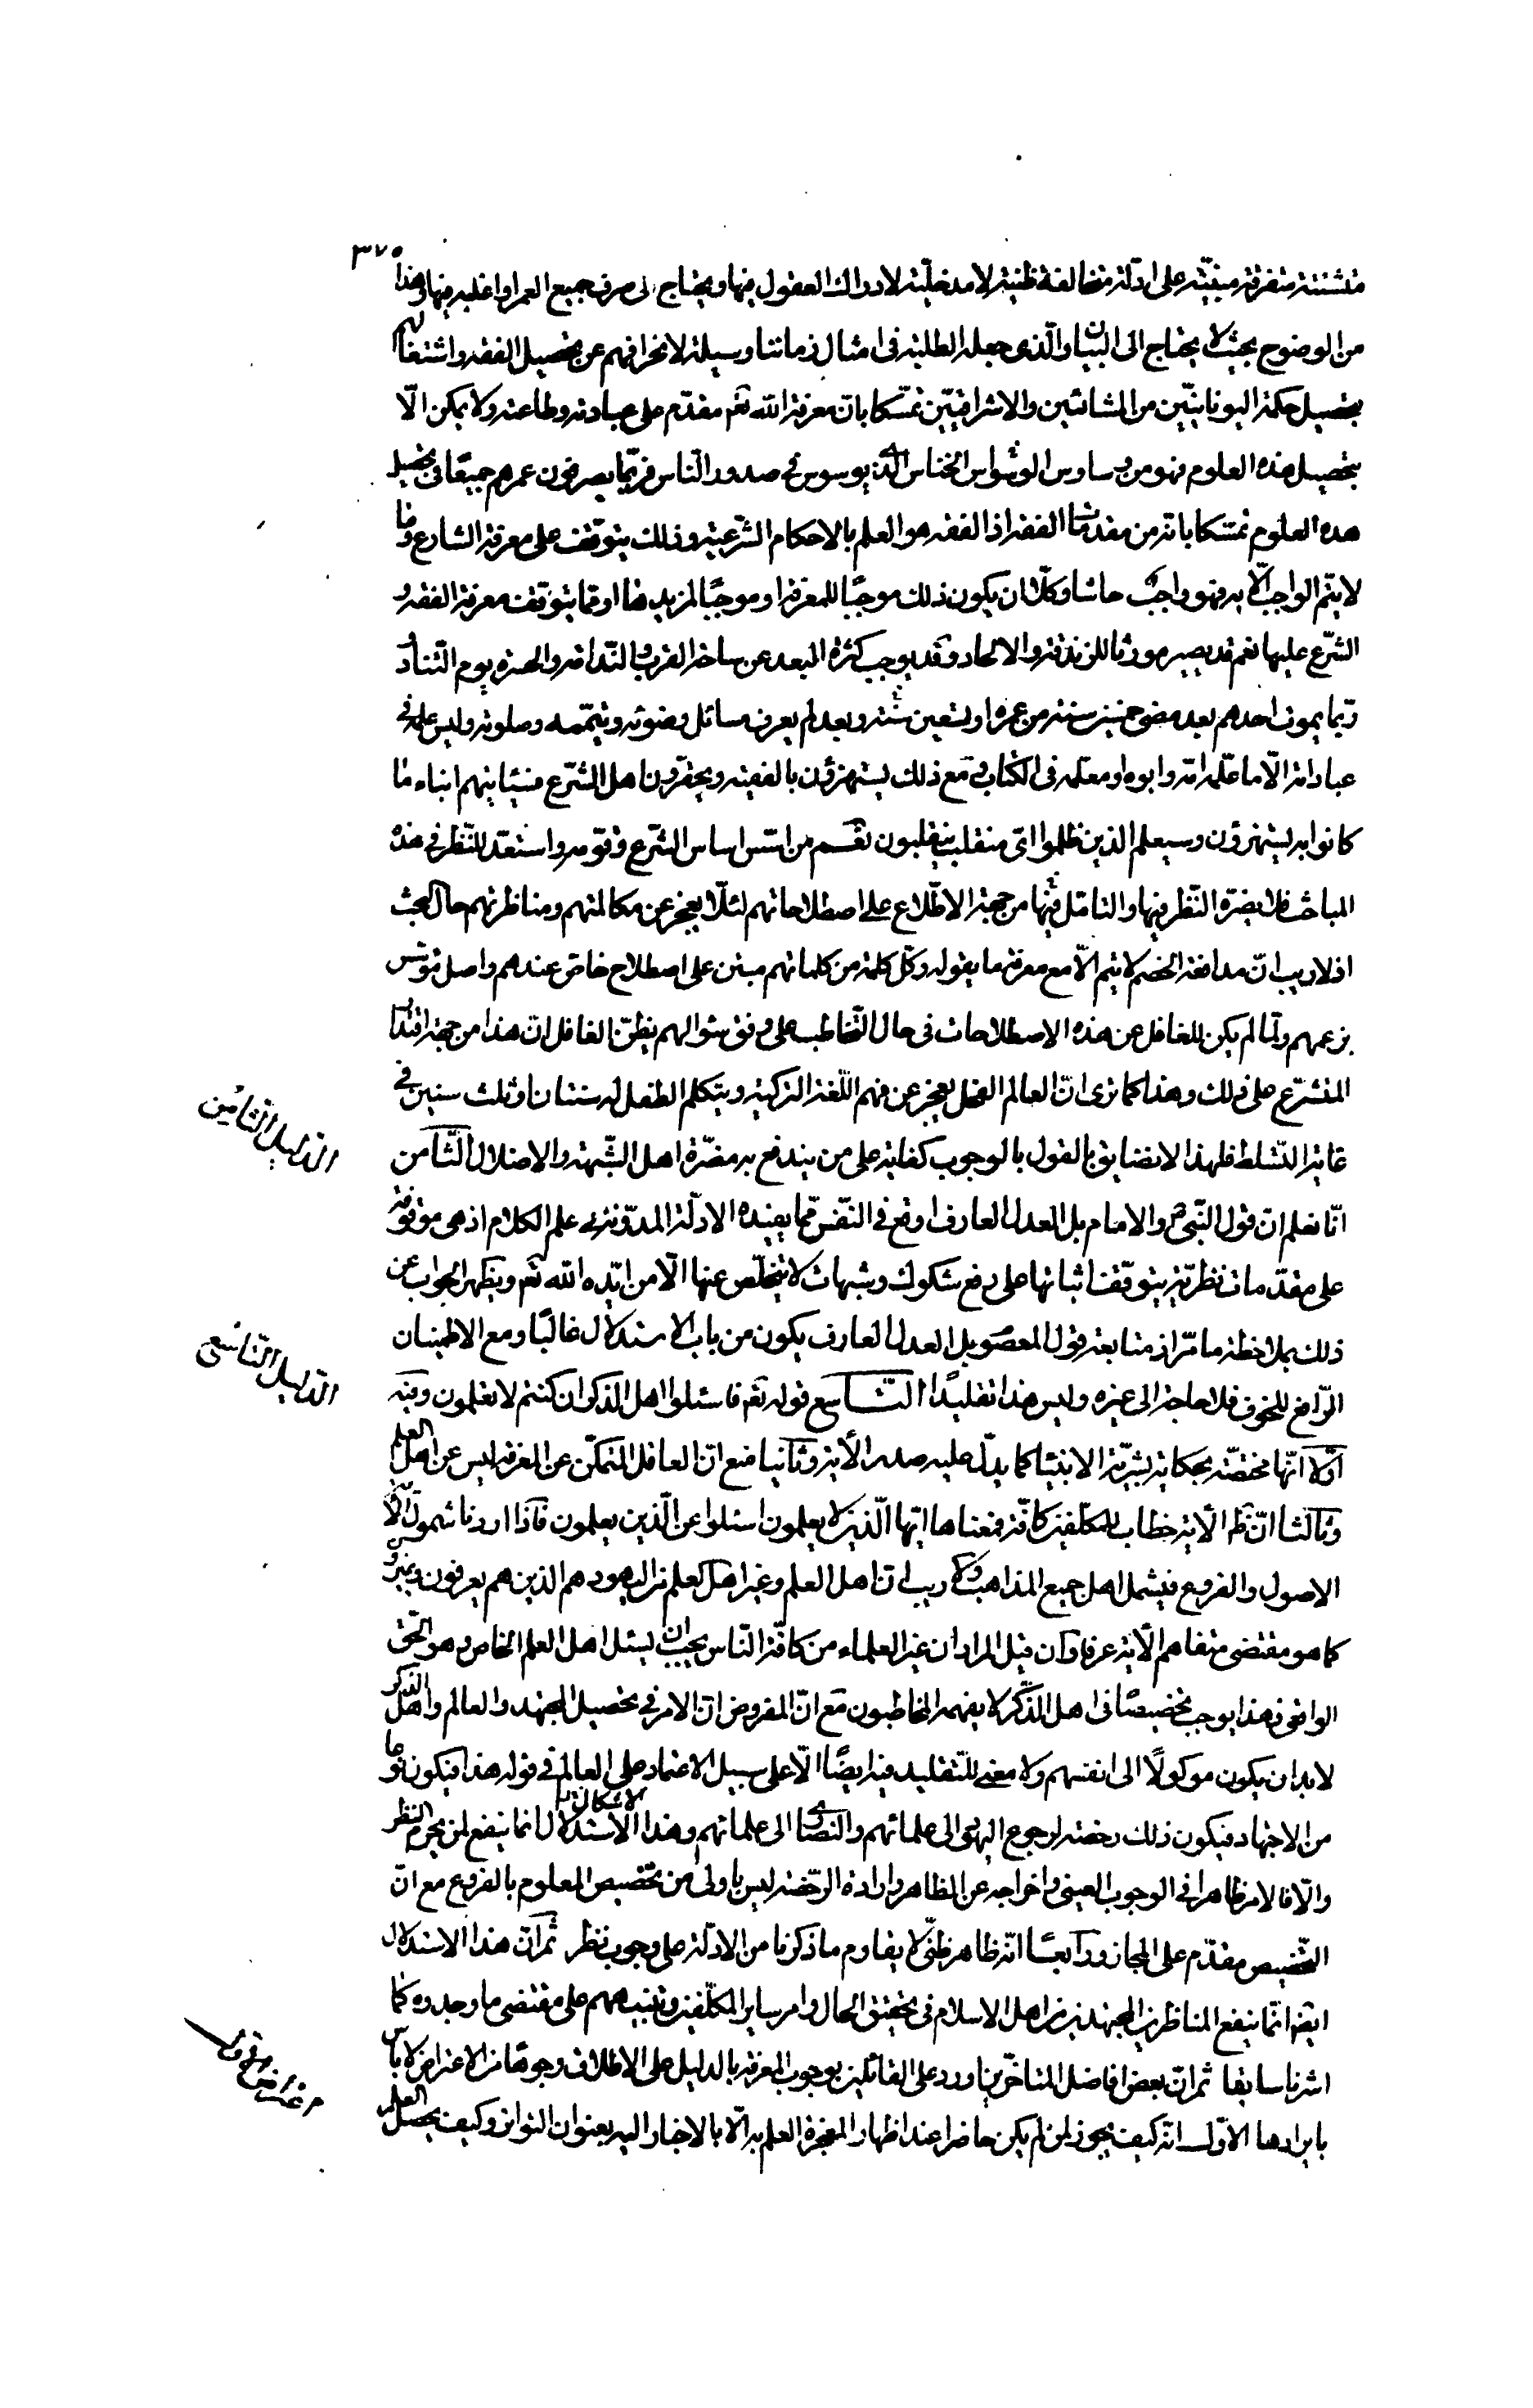 ٣٧٥
متشتتة متفرقة مبنيّة على ادلّة متخالفة ظنية لا مدخليّة لادراك العقول فيها ويحتاج الى صرف جميع العمر او اغلبه فيها وهذا
من الوضوح بحيث لا يحتاج الى البيان والّذى جعله الطلبة فى امثال زماننا وسيلة لانحرافهم عن تحصيل الفقه واشتغالهم
بتحصيل حكمة اليونانيّين من المشائين والاشراقيّين تمسّكا بان معرفة الله تعم مقدّم على عبادته وطاعته ولا يمكن الّا
بتحصيل هذه العلوم فهو من وساوس الوسواس الخناس الّذى يوسوس فى صدور النّاس فربّما يصرفون عمرهم جميعًا فى تحصيل
هذه العلوم تمسّكا بانّه من مقدمات الفقه اذ الفقه هو العلم بالاحكام الشّرعيّة وذلك يتوقّف على معرفة الشارع وما
لا يتم الواجب الّا به فهو واجب حاشا وكلّا ان يكون ذلك موجبًا للمعرفة او موجبًا لمزيدها او ممّا يتوقّف معرفة الفقه و
الشّرع عليها نعم قد يصير مورثا للزندقة والالحاد وقد يوجب كثرة البعد عن ساحة القرب والنّدامة والحسرة يوم التّناد
ربّما يموت احدهم بعد مضى خمسين سنة من عمره او تسعين سنة وبعد لم يعرف مسائل وضوئه وتيمّمه وصلوته وليس علمه فى
عباداته الّا ما علّمه امّه وابوه او معلّمه فى الكتاب ومع ذلك يستهزؤن بالفقيه ويحقّرون اهل الشّرع فسيأتيهم انباء ما
كانوا به يستهزؤن وسيعلم الذين ظلموا اىّ منقلب ينقلبون نعم من اسّس اساس الشّرع وقوّمه واستعدّ للنّظر فى هذه
المباحث فلا يضرّه النّظر فيها والتامّل فيها من جهة الاطّلاع على اصطلاحاتهم لئلّا يعجز عن مكالمتهم ومناظرتهم حال البحث
اذ لا ريب انّ مدافعة الخصم لا يتم الّا مع معرفة ما يقوله وكلّ كلمة من كلماتهم مبتن على اصطلاح خاصّ عندهم واصل مؤسّس
بزعمهم ولمّا لم يكن للغافل عن هذه الاصطلاحات فى حال التّخاطب على وفق سؤالهم يظنّ الغافل انّ هذا من جهة اقتدا
المتشرّع على ذلك وهذا كما ترى انّ العالم الفحل يعجز عن فهم اللّغة التركية ويتكلم الطفل له سنتان او ثلث سنين فى
غاية التّسلط فلهذا لا نضايق بالقول بالوجوب كفاية على من يندفع به مضرّة اهل الشّبهة والاضلال الثّامن
انّا نعلم انّ قول النّبى ص والامام بل العدل العارف اوقع فى النّفس ممّا يفيده الادلّة المدوّنة فى علم الكلام اذ هى موقوفة
على مقدّمات نظريّة يتوقّف اثباتها على دفع شكوك وشبهات لا يتخلّص عنها الّا من ايّده الله تعم ويظهر الجواب عن
ذلك بملاحظة ما مرّ اذ متابعة قول المعصوم بل العدل العارف يكون من باب الاستدلال غالبًا ومع الاطمينان
الرّافع للخوف فلا حاجة الى غيره وليس هذا تقليدًا التّاسع قوله تعم فاسئلوا اهل الذكر ان كنتم لا تعلمون وفيه
اوّلا انّها مختصّة بحكاية بشريّة الانبيا كما يدلّ عليه صدر الأية وثانيا منع انّ العاقل المتمكّن عن المعرفة ليس عن اهل العلم
وثالثا انّ ظم الأية خطاب للمكلفين كافّة فمعناها ايّها الّذين لا يعلمون اسئلوا عن الّذين يعلمون فاذا اردنا شمول الأية
الاصول والفروع فيشمل اهل جميع المذاهب ولا ريب ان اهل العلم وغير اهل العلم من اليهود هم الذين هم يعرفون
كما هو مقتضى متفاهم الأية عرفا وان قيل المراد ان غير العلماء من كافّة النّاس يجب ان يسئل اهل العلم الخاص وهو الحقّ
الواقعى فهذا يوجب تخصيصًا فى اهل الذّكر لا يفهمه المخاطبون مع انّ المفروض انّ الامر فى تحصيل المجتهد والعالم واهل الذكر
لا بد ان يكون موكولًا الى انفسهم ولا معنى للتّقليد فيه ايضًا الّا على سبيل الاعتماد على العالم فى قوله هذا فيكون نوعا
من الاجتهاد فيكون ذلك رخصة لرجوع اليهود الى علمائهم والنصارى الى علمائهم وهذا الاستدلال انما ينفع لمن يحرم النظر
والّا فالامر ظاهر فى الوجوب العينى واخراجه عن الظاهر وارادة الرّخصة ليس باولى من تخصيص المعلوم بالفروع مع انّ
التّخصيص مقدّم على المجاز ورابعًا انّه ظاهر ظنّى لا يقاوم ما ذكرنا من الادلّة على وجوب نظر ثم انّ هذا الاستدلال
ايضا انّما ينفع المناظرين المجتهدين من اهل الاسلام فى تحقيق الحال وامر ساير المكلّفين وتنبيههم على مقتضى ما وجدوه كما
اشرنا سابقا ثم انّ بعض افاضل المتاخّرين اورد على القائلين بوجوب المعرفة بالدليل على الاطلاق وجوها من الاعتراض لا باس
بايرادها الاوّل انّه كيف يجوز لمن لم يكن حاضرا عند اظهار المعجزة العلم به الّا بالاخبار اليه بعنوان التواتر وكيف يحصل العلم
الدّليل الثّامن
الدّليل التّاسع